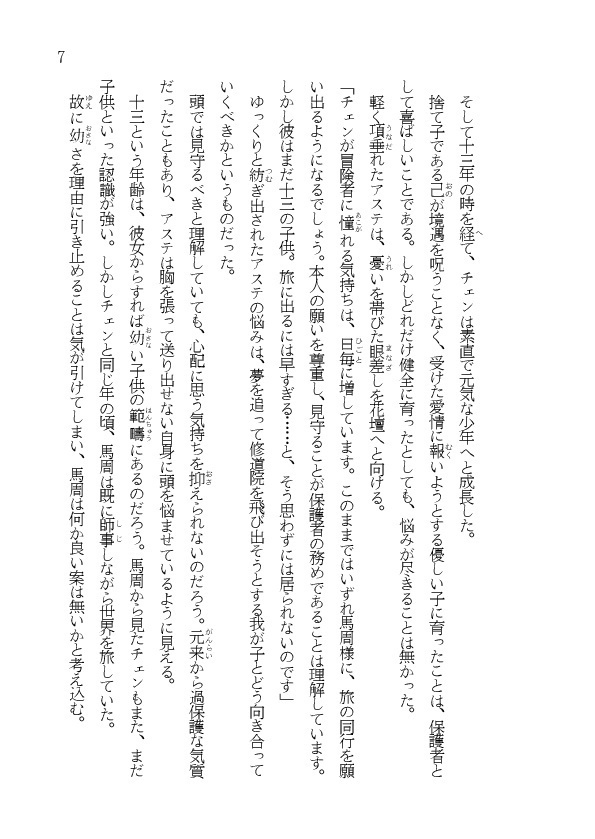 そして十三年の時を経て、チェンは素直で元気な少年へと成長した。
捨て子である己が境遇を呪うことなく、受けた愛情に報いようとする優しい子に育ったことは、保護者と
して喜ばしいことである。しかしどれだけ健全に育ったとしても、悩みが尽きることは無かった。
軽く項垂れたアステは、憂いを帯びた眼差しを花壇へと向ける。
「チェンが冒険者に憧れる気持ちは、日毎に増しています。このままではいずれ馬周様に、旅の同行を願
い出るようになるでしょう。本人の願いを尊重し、見守ることが保護者の務めであることは理解しています。
しかし彼はまだ十三の子供。旅に出るには早すぎる……と、そう思わずには居られないのです」
ゆっくりと紡ぎ出されたアステの悩みは、夢を追って修道院を飛び出そうとする我が子とどう向き合って
いくべきかというものだった。
頭では見守るべきと理解していても、心配に思う気持ちを抑えられないのだろう。元来から過保護な気質
だったこともあり、アステは胸を張って送り出せない自身に頭を悩ませているように見える。
十三という年齢は、彼女からすれば幼い子供の範疇にあるのだろう。馬周から見たチェンもまた、まだ
子供といった認識が強い。しかしチェンと同じ年の頃、馬周は既に師事しながら世界を旅していた。
故に幼さを理由に引き止めることは気が引けてしまい、馬周は何か良い案は無いかと考え込む。
7